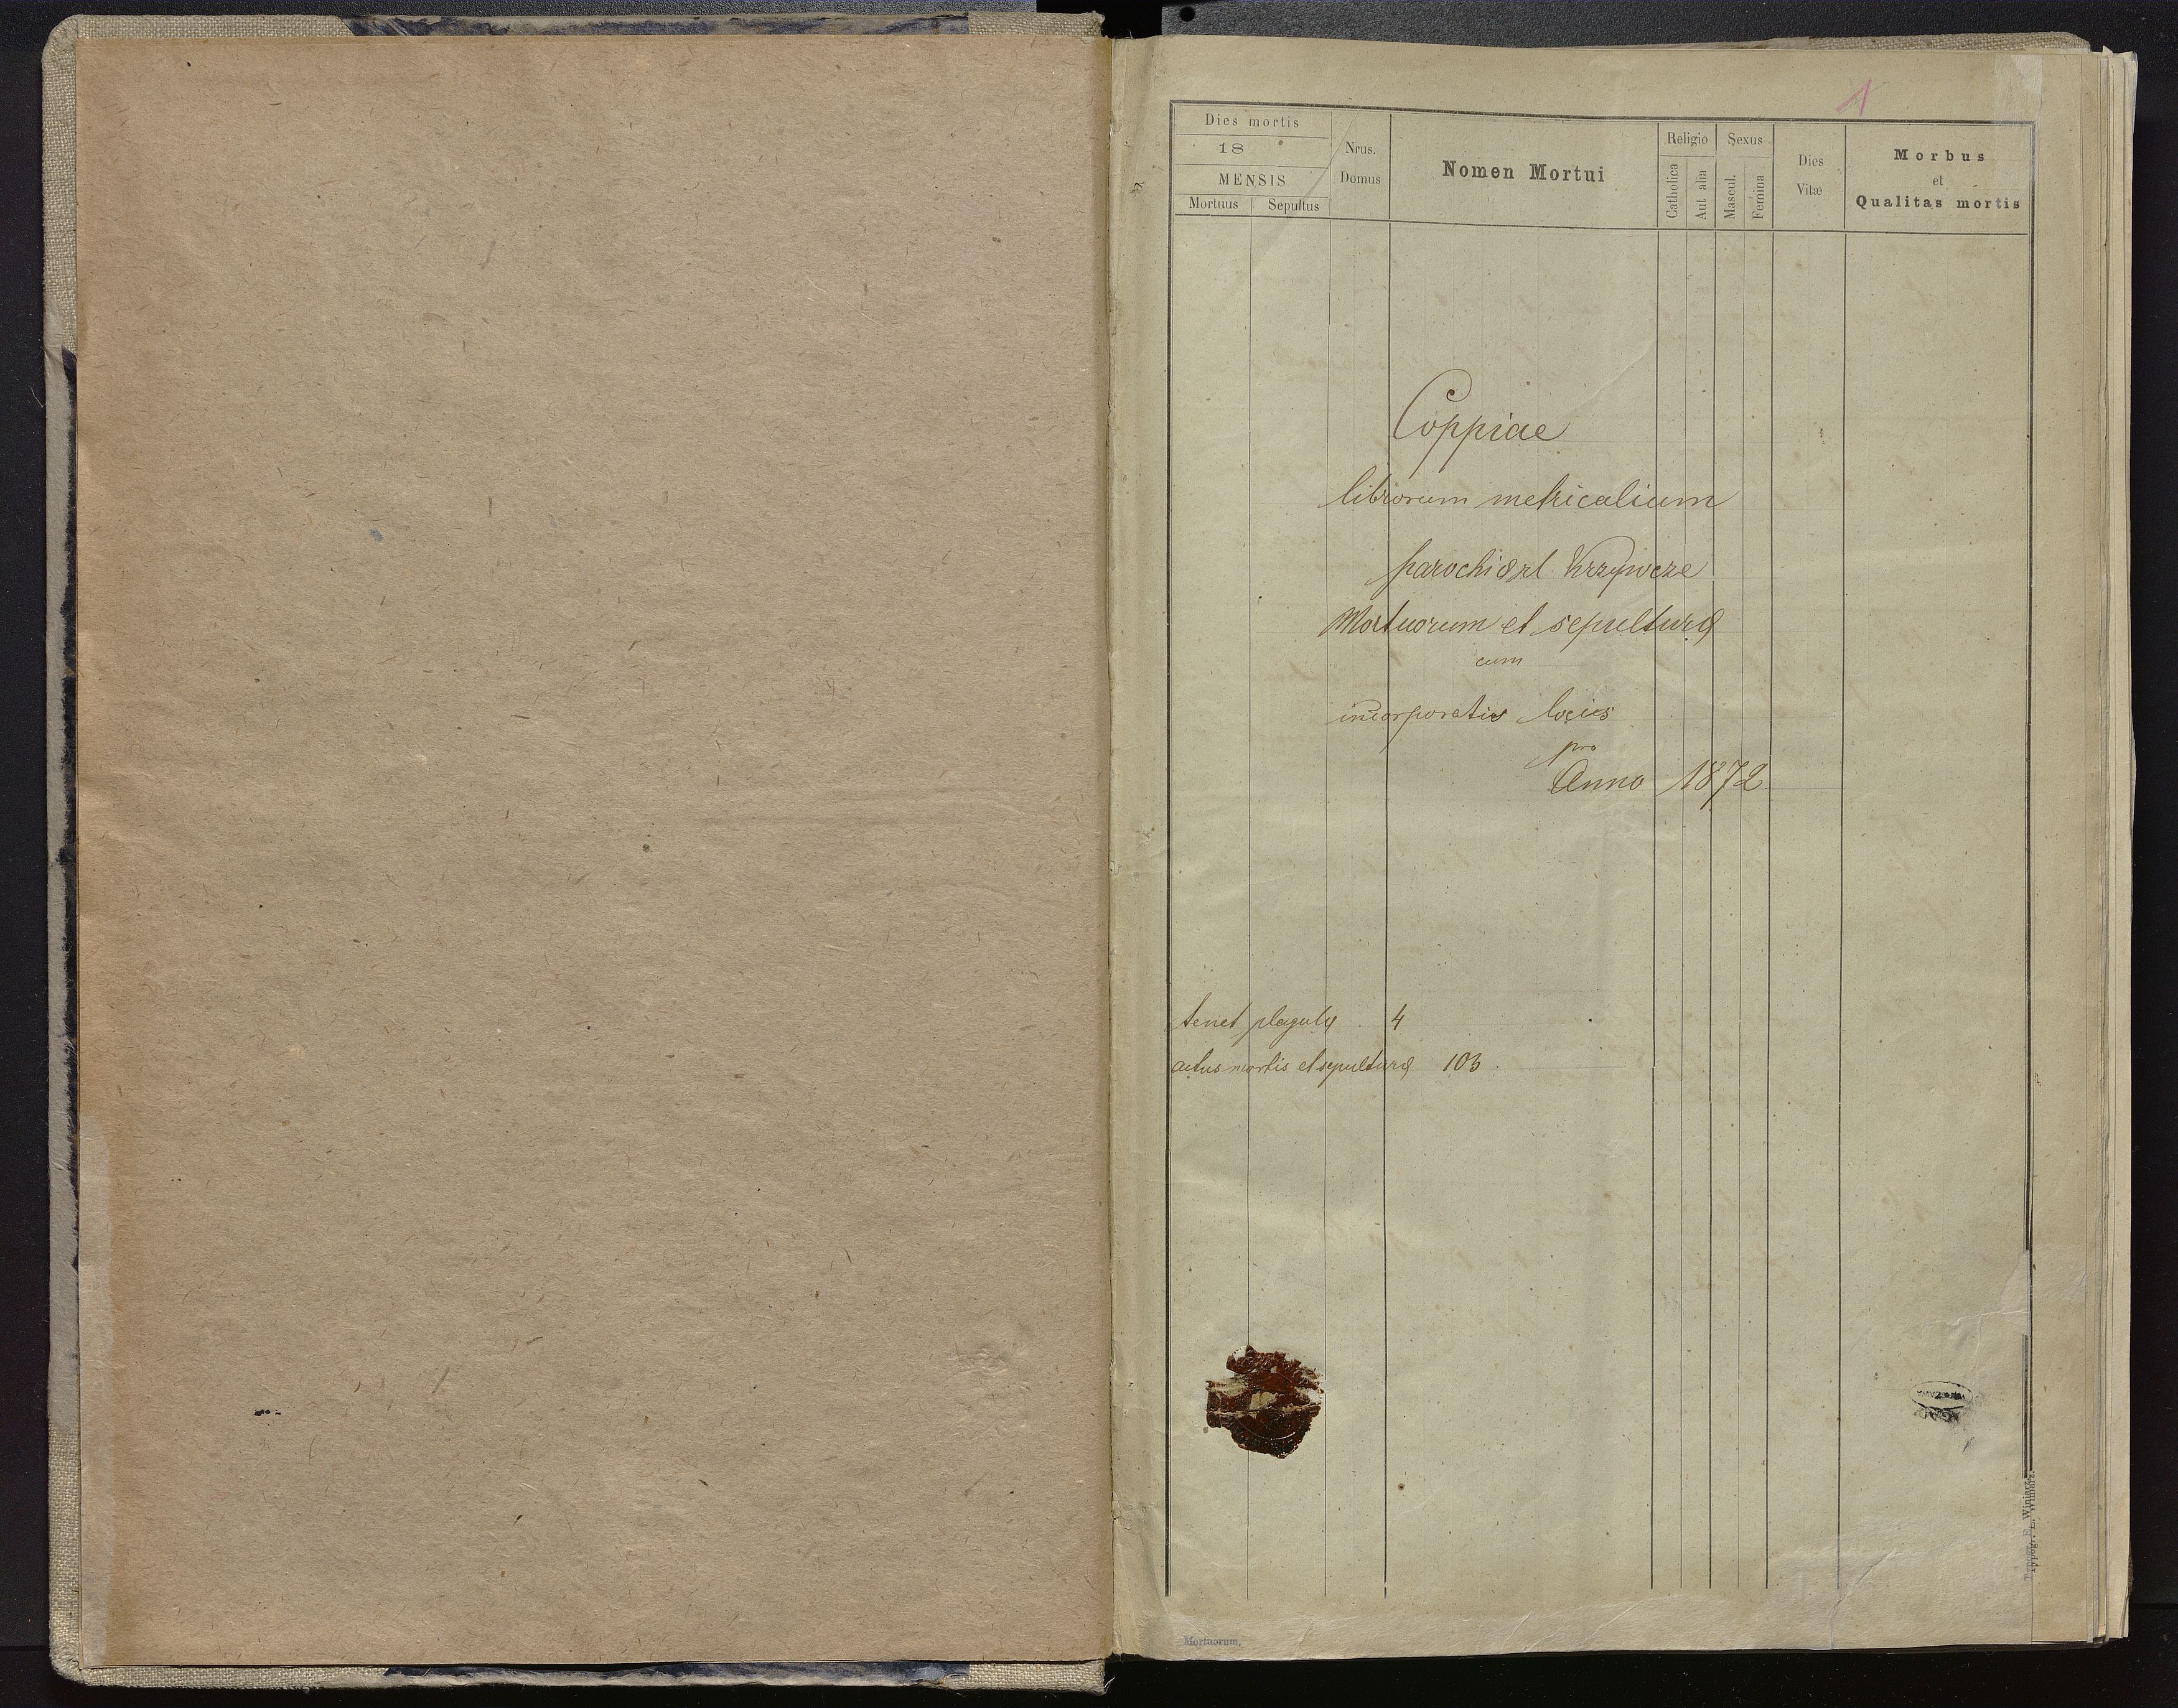 1
Dies mortis
18
MENSIS
Mortuus Sepultus
Nrus. Domus
Nomen Mortui
Religio
Catholica
Aut alia
Sexus
Mascul.
Femina
Dies Vitæ
Morbus
et
Qualitas mortis
Coppiae
librorum metricalium
Krzywcze
Mortuorum et sepulturæ
cum
incorporatis locis
pro
Anno 1872
tenet plagulæ 4
actus mortis et sepulturæ 103
Mortuorum.
Typogr. E. Winiarz.